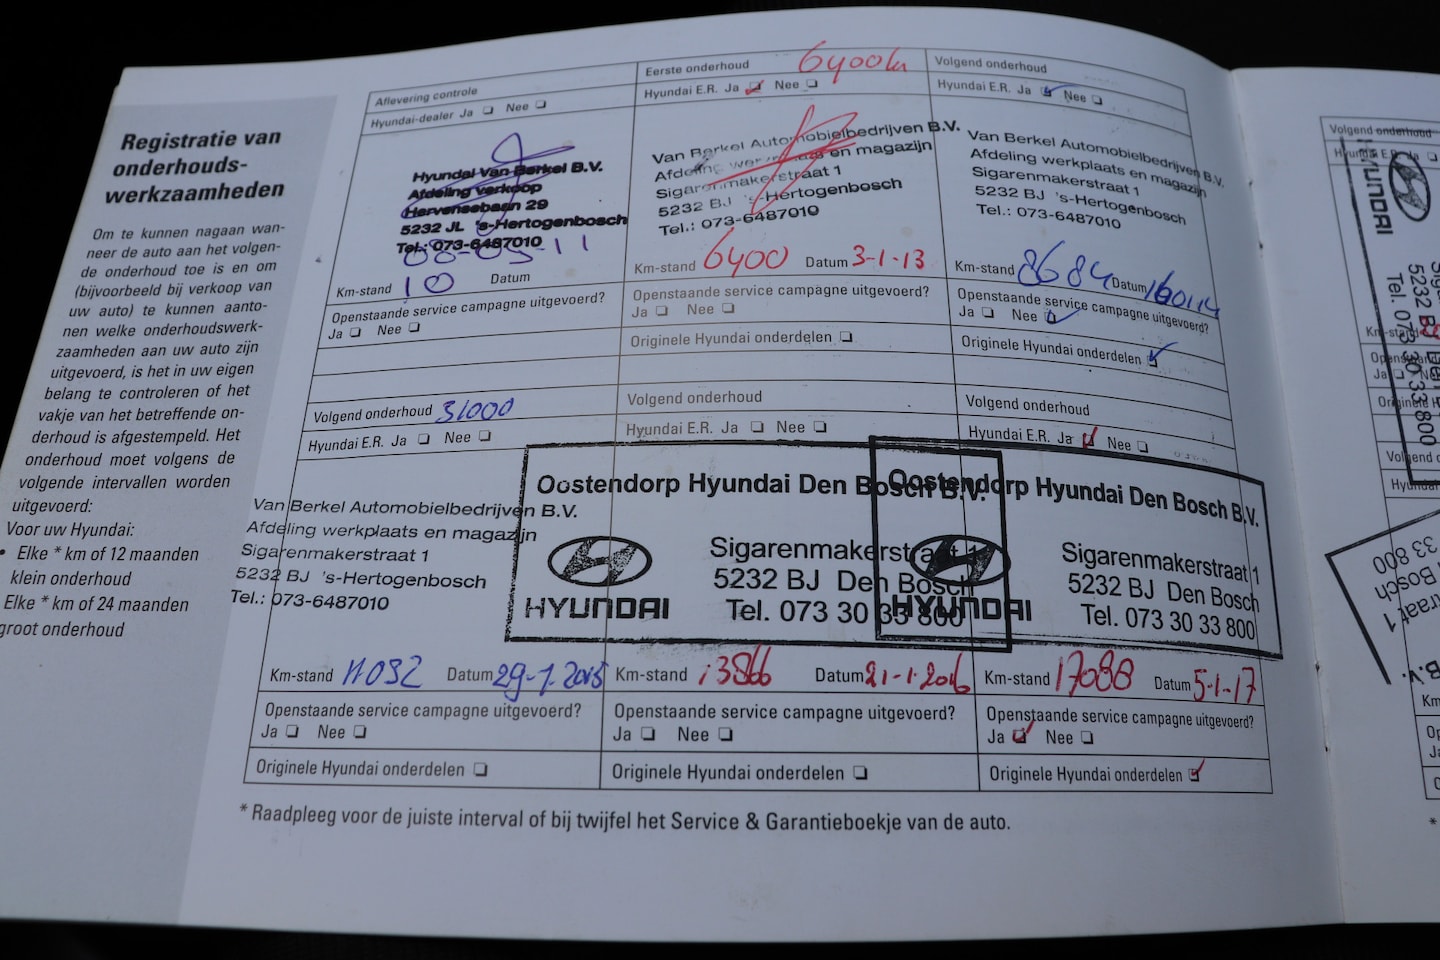 Registratie van
onderhouds-
werkzaamheden
Om te kunnen nagaan wan-
neer de auto aan het volgen-
de onderhoud toe is en om
(bijvoorbeeld bij verkoop van
uw auto) te kunnen aanto-
nen welke onderhoudswerk-
zaamheden aan uw auto zijn
uitgevoerd, is het in uw eigen
belang te controleren of het
vakje van het betreffende on-
derhoud is afgestempeld. Het
onderhoud moet volgens de
volgende intervallen worden
uitgevoerd:
Voor uw Hyundai:
• Elke * km of 12 maanden
klein onderhoud
Elke * km of 24 maanden
groot onderhoud
Aflevering controle
Hyundai-dealer Ja Nee
Hyundai Van Berkel B.V.
Afdeling verkoop
Hervensebaan 29
5232 JL 's-Hertogenbosch
Tel.: 073-6487010
08-03-11
Km-stand 10 Datum
Openstaande service campagne uitgevoerd?
Ja Nee
Eerste onderhoud 6400km
Hyundai E.R. Ja Nee
Van Berkel Automobielbedrijven B.V.
Afdeling werkplaats en magazijn
Sigarenmakerstraat 1
5232 BJ 's-Hertogenbosch
Tel.: 073-6487010
Km-stand 6400 Datum 3-1-13
Openstaande service campagne uitgevoerd?
Ja Nee
Originele Hyundai onderdelen
Volgend onderhoud
Hyundai E.R. Ja Nee
Van Berkel Automobielbedrijven B.V.
Afdeling werkplaats en magazijn
Sigarenmakerstraat 1
5232 BJ 's-Hertogenbosch
Tel.: 073-6487010
Km-stand 8684 Datum 160114
Openstaande service campagne uitgevoerd?
Ja Nee
Originele Hyundai onderdelen
Volgend onderhoud 31000
Hyundai E.R. Ja Nee
Van Berkel Automobielbedrijven B.V.
Afdeling werkplaats en magazijn
Sigarenmakerstraat 1
5232 BJ 's-Hertogenbosch
Tel.: 073-6487010
Km-stand 11032 Datum 29-1-2015
Openstaande service campagne uitgevoerd?
Ja Nee
Originele Hyundai onderdelen
Volgend onderhoud
Hyundai E.R. Ja Nee
Oostendorp Hyundai Den Bosch B.V.
Sigarenmakerstraat 1
5232 BJ Den Bosch
HYUNDAI Tel. 073 30 33 800
Km-stand 13866 Datum 21-1-2016
Openstaande service campagne uitgevoerd?
Ja Nee
Originele Hyundai onderdelen
Volgend onderhoud
Hyundai E.R. Ja Nee
Oostendorp Hyundai Den Bosch B.V.
Sigarenmakerstraat 1
5232 BJ Den Bosch
HYUNDAI Tel. 073 30 33 800
Km-stand 17088 Datum 5-1-17
Openstaande service campagne uitgevoerd?
Ja Nee
Originele Hyundai onderdelen
* Raadpleeg voor de juiste interval of bij twijfel het Service & Garantieboekje van de auto.
Volgend onderhoud
HYUNDAI
5232 B
Tel. 073 30 33 800
33 800
Bosch
B.V.